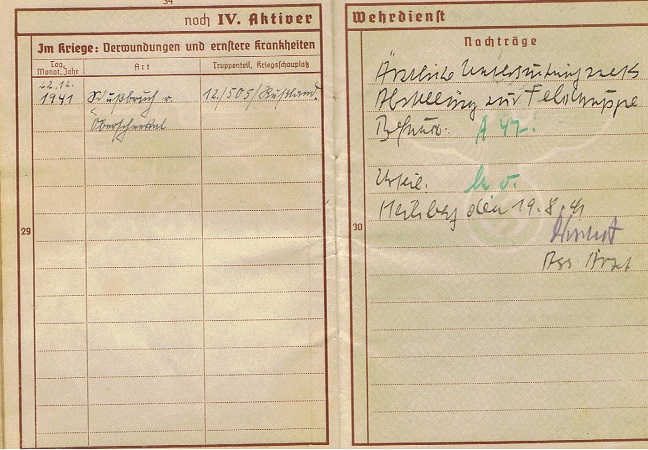 34
noch IV. Aktiver
Im Kriege: Verwundungen und ernstere Krankheiten
Tag, Monat, Jahr
Art
Truppenteil, Kriegsschauplatz
22.12.
1941
Schußbruch r.
12/505/Rußland.
Oberschenkel
29
Wehrdienst
Nachträge
Ärztliche Untersuchung zwecks
Abstellung zur Feldtruppe
Befund: A 47.
Urteil: kv.
den 19.8.41
Ass Arzt
30